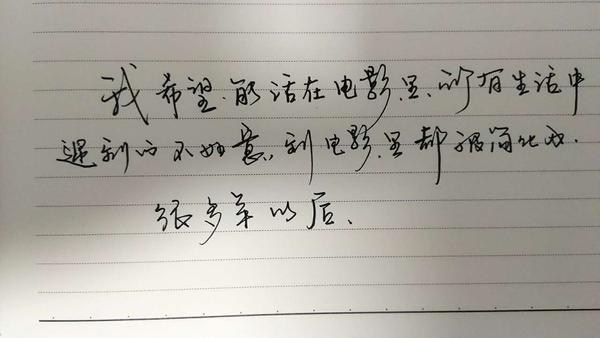 我希望.能活在电影里.所有生活中
遇到的不如意,到电影里都被简化成.
很多年以后.